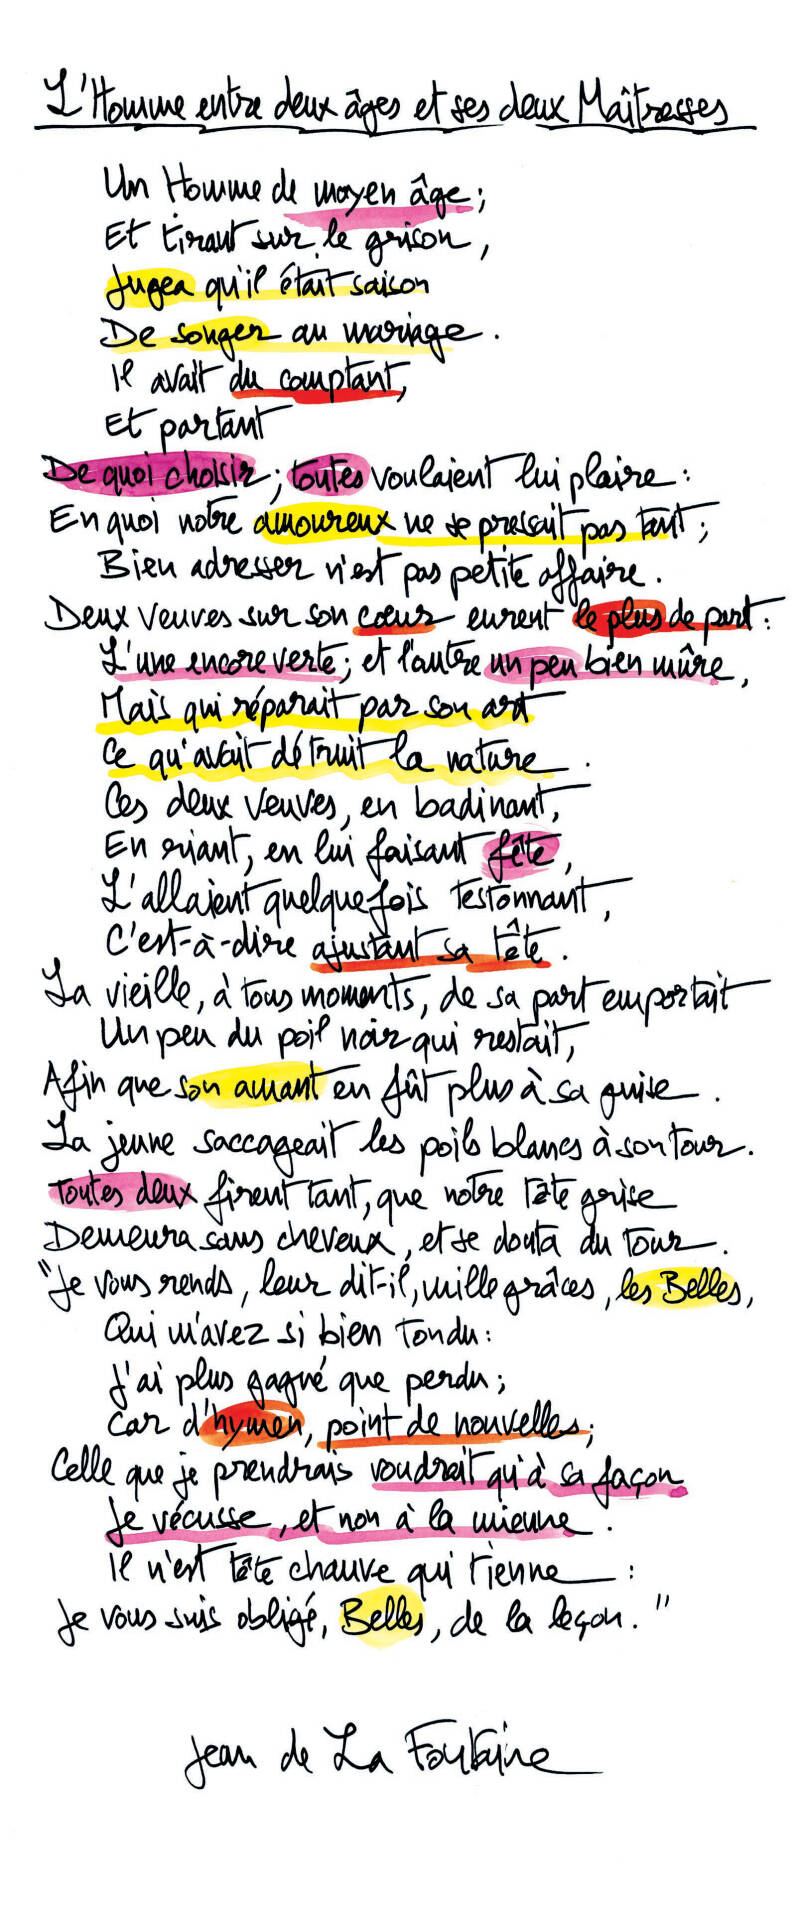 L'Homme entre deux âges et ses deux Maîtresses
Un Homme de moyen âge ;
Et tirant sur le grison,
Jugea qu'il était saison
De songer au mariage.
Il avait du comptant,
Et partant
De quoi choisir ; toutes voulaient lui plaire :
En quoi notre amoureux ne se pressait pas tant ;
Bien adresser n'est pas petite affaire.
Deux Veuves sur son cœur eurent le plus de part :
L'une encore verte ; et l'autre un peu bien mûre,
Mais qui réparait par son art
Ce qu'avait détruit la nature.
Ces deux Veuves, en badinant,
En riant, en lui faisant fête,
L'allaient quelquefois testonnant,
C'est-à-dire ajustant sa tête.
La vieille, à tous moments, de sa part emportait
Un peu du poil noir qui restait,
Afin que son amant en fût plus à sa guise.
La jeune saccageait les poils blancs à son tour.
Toutes deux firent tant, que notre tête grise
Demeura sans cheveux, et se douta du tour.
"Je vous rends, leur dit-il, mille grâces, les Belles,
Qui m'avez si bien tondu :
J'ai plus gagné que perdu ;
Car d'hymen, point de nouvelles ;
Celle que je prendrais voudrait qu'à sa façon
Je vécusse, et non à la mienne.
Il n'est tête chauve qui tienne :
Je vous suis obligé, Belles, de la leçon."
Jean de La Fontaine